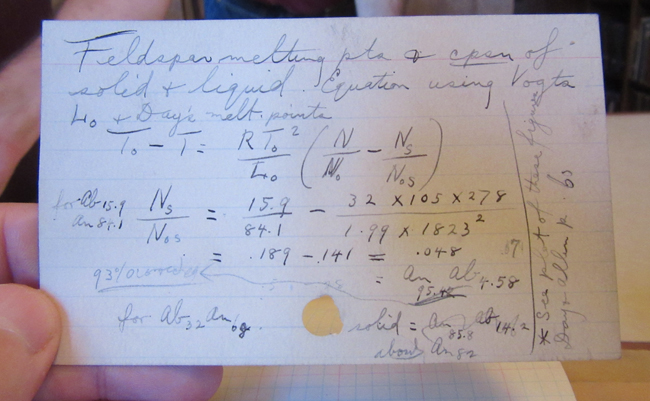 Feldspar melting pts & cpsn of
solid & liquid. Equation using Vogts
L₀ & Day's melt. points
T₀ - T = R T₀² / L₀ ( N / N₀ - Nₛ / N₀ₛ )
for Ab 15.9 An 84.1 Nₛ / N₀ₛ = 15.9 / 84.1 - 32 × 105 × 278 / 1.99 × 1823²
= .189 - .141 = .048
= An 95.42 Ab 4.58
93%
for Ab 32 An 68 solid = An 85.8 Ab 14.2
about An 82
* See plot of these figures
Day & Allen p. 63